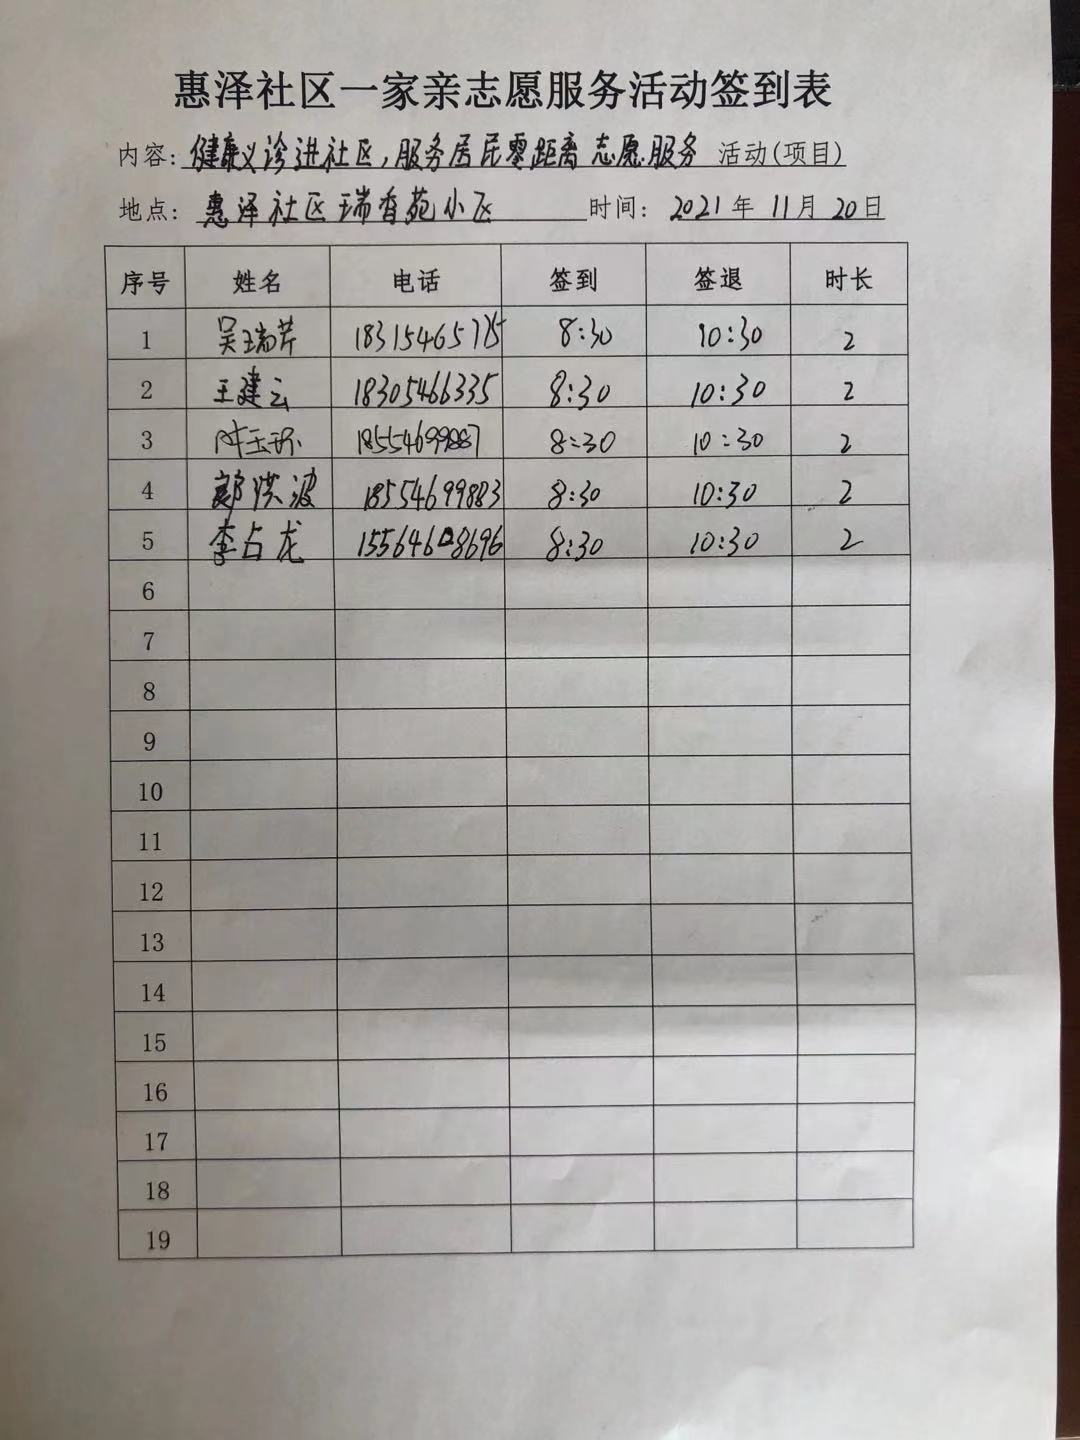 惠泽社区一家亲志愿服务活动签到表
内容: 健康义诊进社区,服务居民零距离志愿服务 活动(项目)
地点: 惠泽社区瑞香苑小区 时间: 2021年 11月 20日
序号 姓名 电话 签到 签退 时长
1 吴瑞芹 8:30 10:30 2
2 王建云 18305466335 8:30 10:30 2
3 18554699887 8:30 10:30 2
4 郭洪波 18554699883 8:30 10:30 2
5 李占龙 8:30 10:30 2
6
7
8
9
10
11
12
13
14
15
16
17
18
19